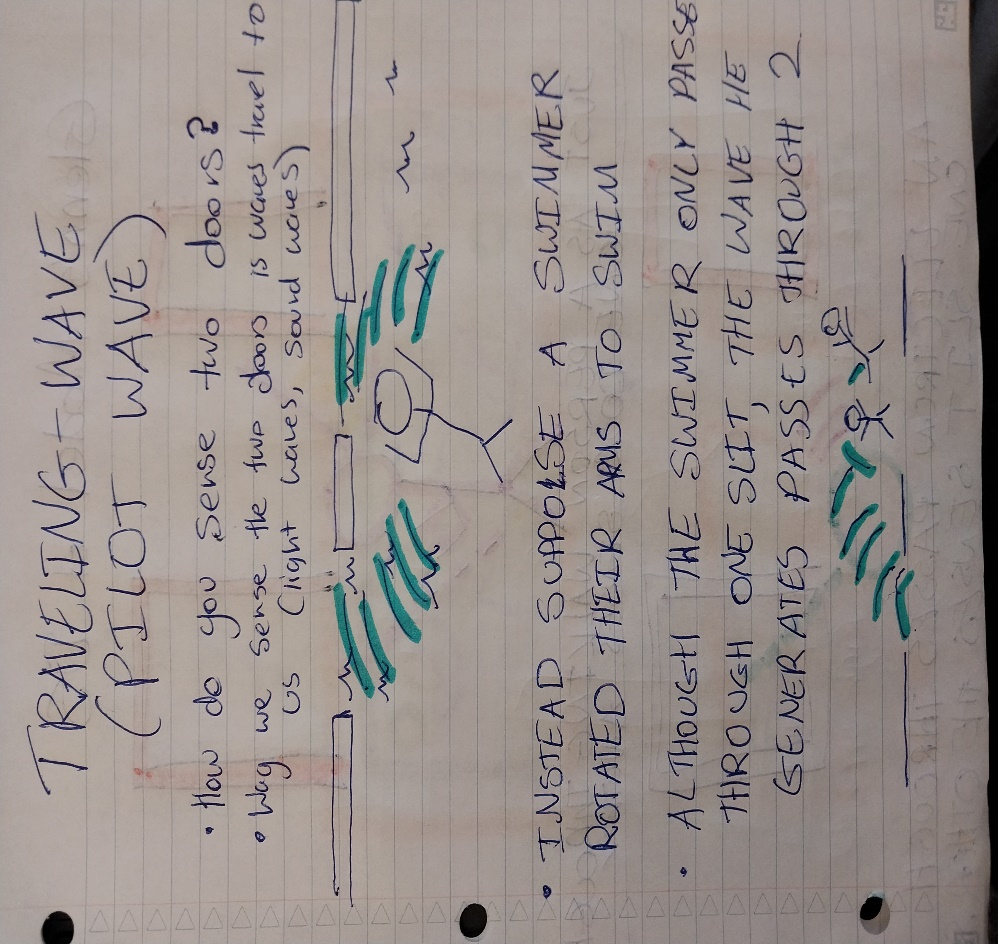 TRAVELING-WAVE
(PILOT WAVE)
• How do you sense two doors?
• Way we sense the two doors is waves travel to
us (light waves, sound waves)
• INSTEAD SUPPOSE A SWIMMER
ROTATED THEIR ARMS TO SWIM
• ALTHOUGH THE SWIMMER ONLY PASSE
THROUGH ONE SLIT, THE WAVE HE
GENERATES PASSES THROUGH 2